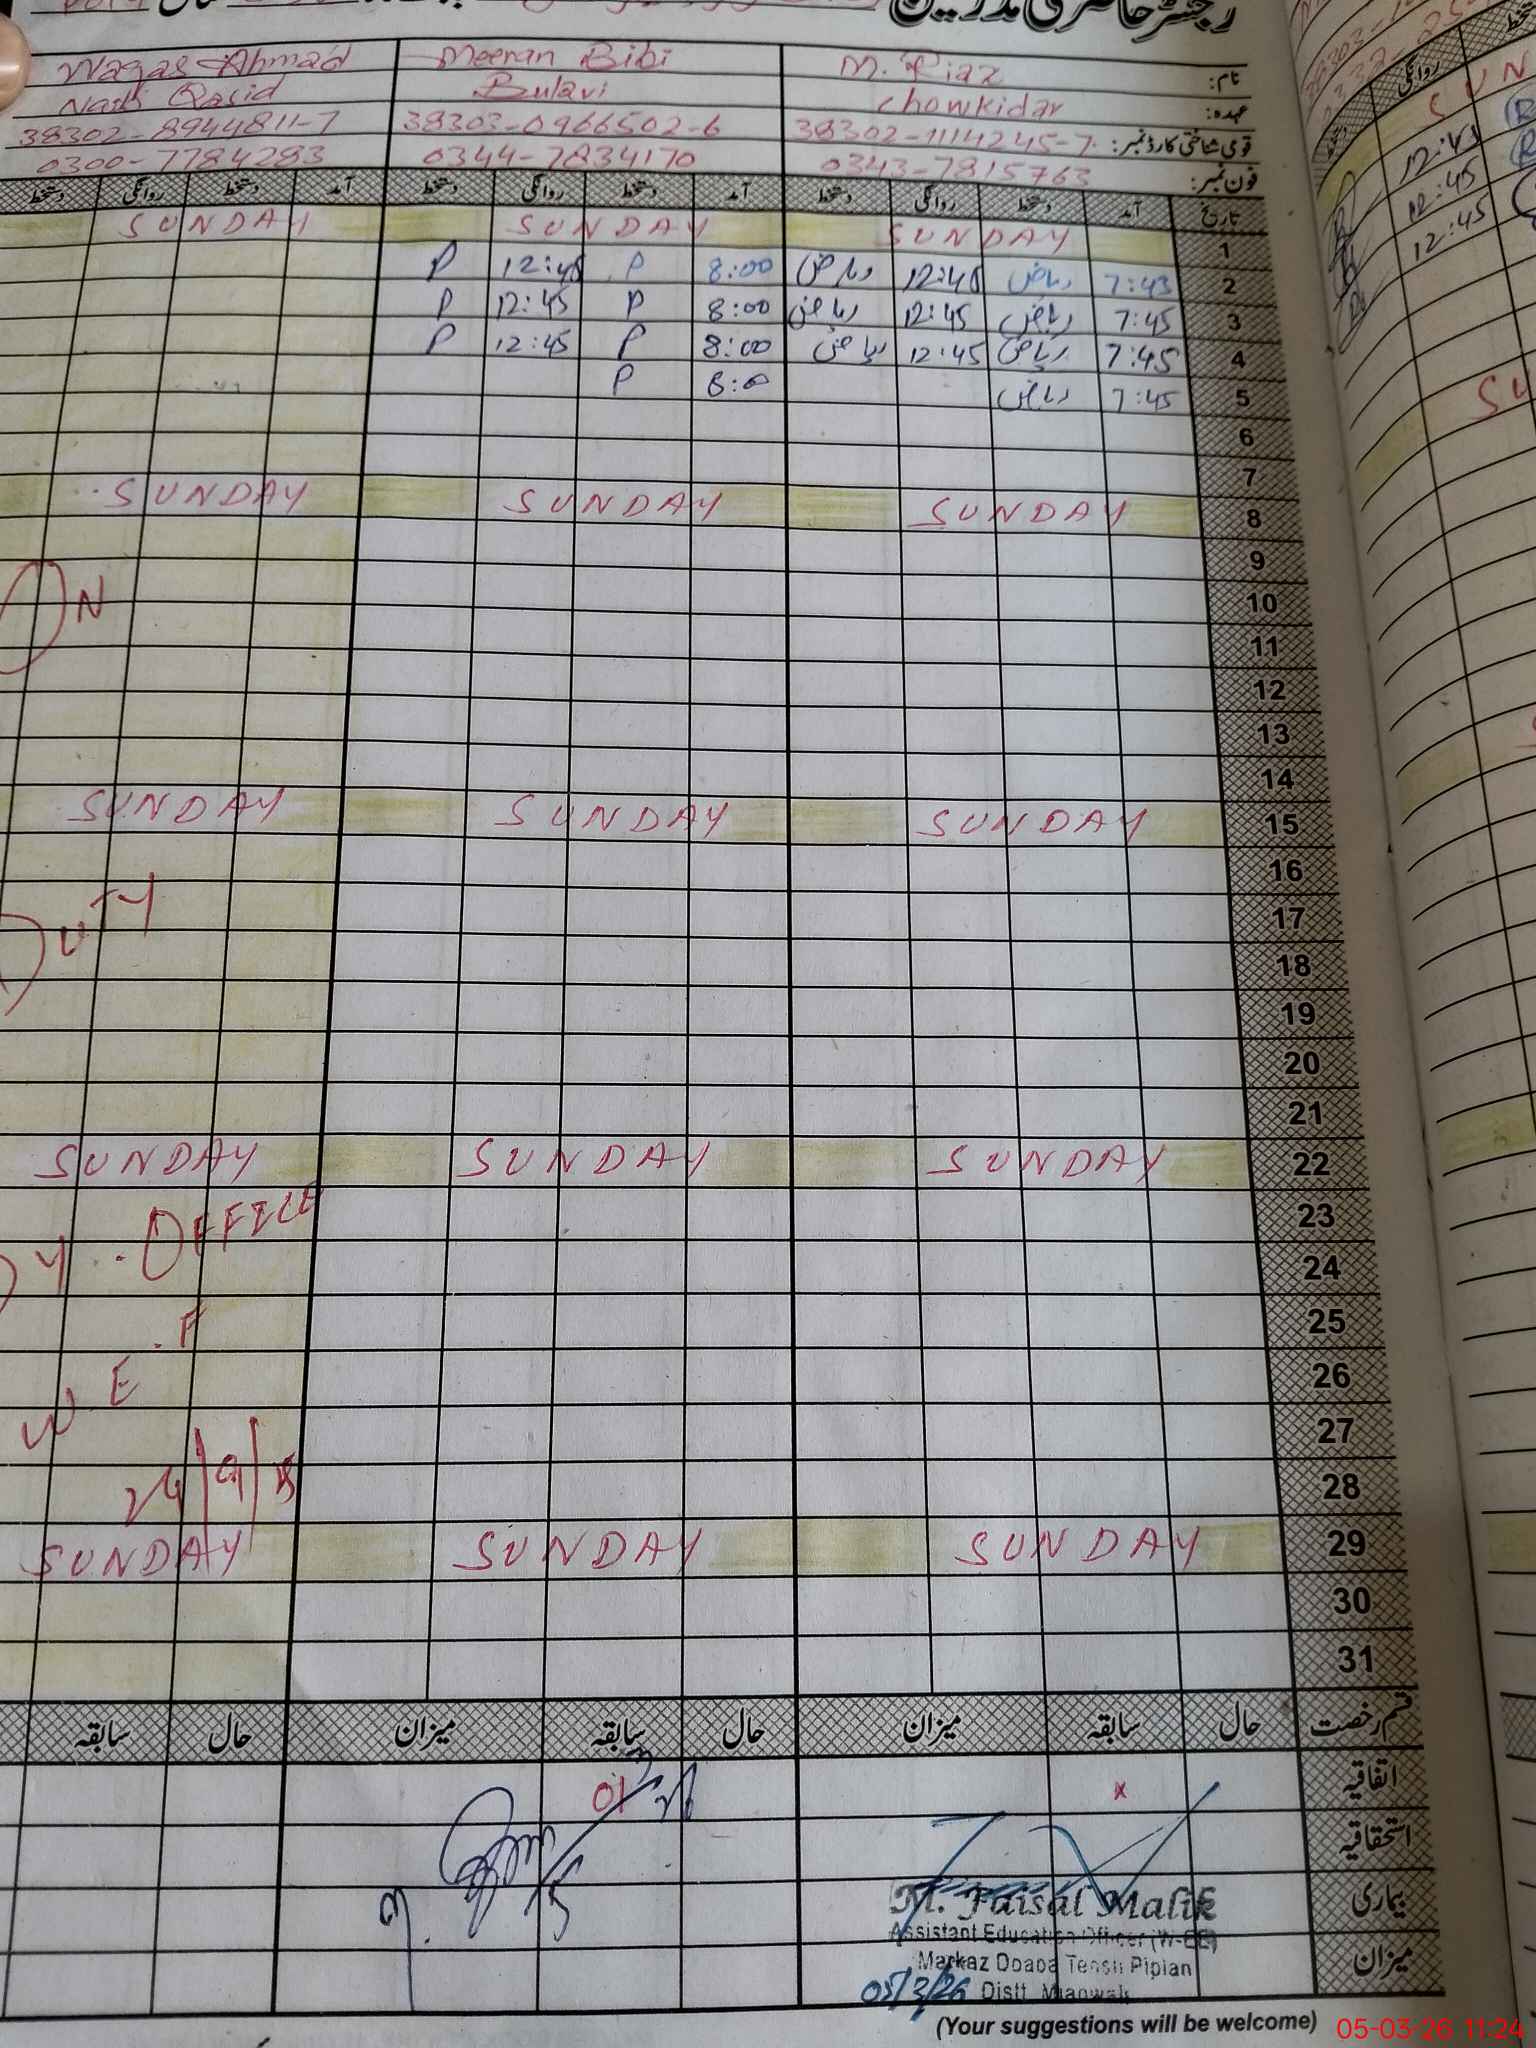 رجسٹر حاضری مدرسین
نام: M. Riaz Meeran Bibi Waqas Ahmad
عہدہ: Chowkidar Bulavi Naib Qasid
قومی شناختی کارڈ نمبر: 38302-1114245-7 38303-0966502-6 38302-8944811-7
فون نمبر: 0343-7815763 0344-7834170 0300-7784283
تاریخ آمد دستخط روانگی دستخط آمد دستخط روانگی دستخط آمد دستخط روانگی دستخط
1 SUNDAY SUNDAY SUNDAY
2 7:43 ریاض 12:45 ریاض 8:00 P 12:45 P
3 7:45 ریاض 12:45 ریاض 8:00 P 12:45 P
4 7:45 ریاض 12:45 ریاض 8:00 P 12:45 P
5 7:45 ریاض 8:00 P
6
7
8 SUNDAY SUNDAY SUNDAY
9
10 ON
11
12
13
14
15 SUNDAY SUNDAY SUNDAY
16
17 DUTY
18
19
20
21
22 SUNDAY SUNDAY SUNDAY
23 OFFICE
24 Y
25 F
26 E
27 W
28
29 SUNDAY SUNDAY SUNDAY
30
31
قسم رخصت حال سابقہ میزان حال سابقہ میزان حال سابقہ
اتفاقیہ x 01
استحقاقیہ
بیماری
میزان
M. Faisal Malik
Assistant Education Officer (W-EE)
Markaz Doaba Tehsil Piplan
05/3/26 Distt. Mianwali
(Your suggestions will be welcome)
05-03-26 11:24
روانگی
SUN
12:45
12:45
12:45